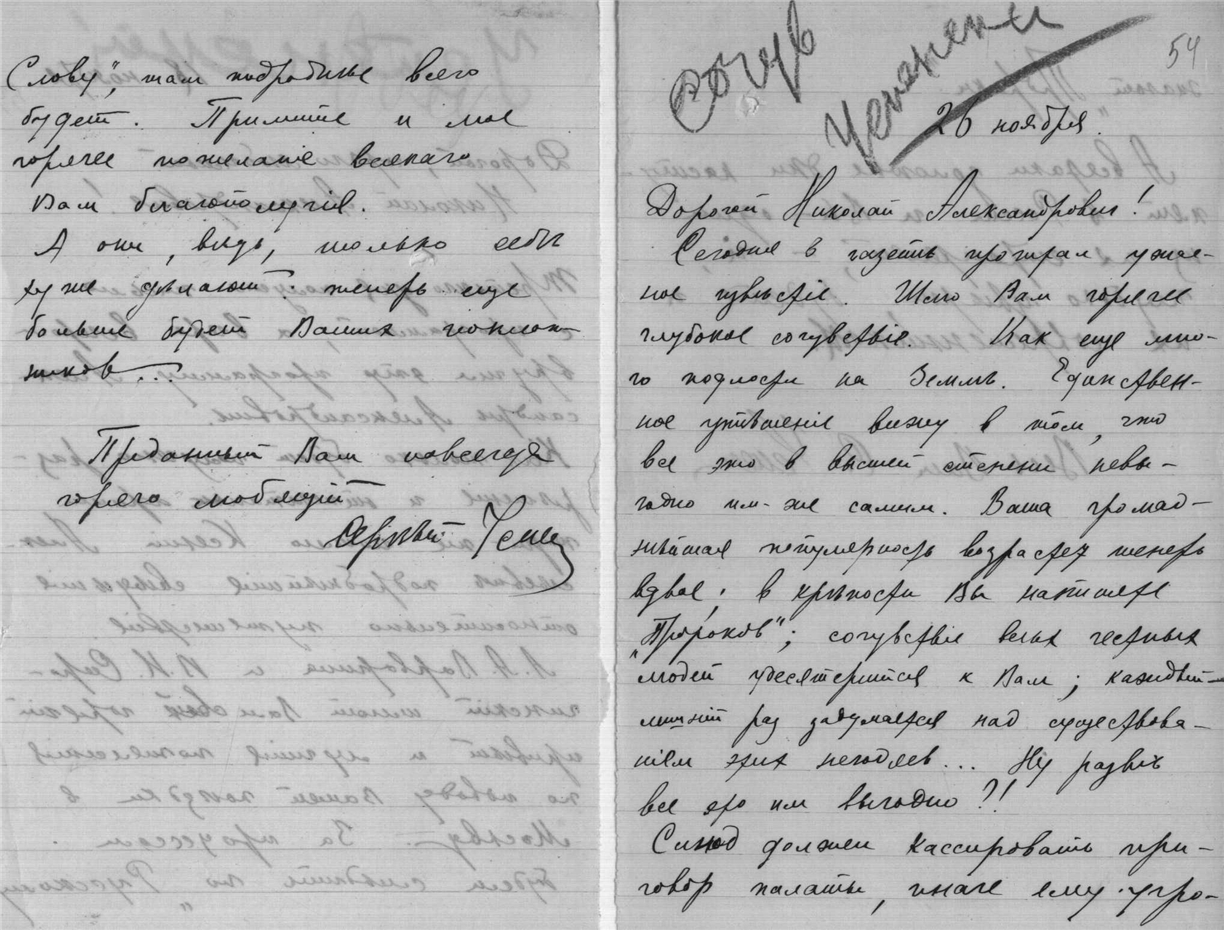 Слову", там подробнѣе всего
будетъ. Примите и мое
горячее пожеланіе всякаго
Вам благополучія.
А они, вѣдь, только себѣ
хуже дѣлают: теперь еще
больше будет Ваших поклон-
ников...
Преданный Вам навсегда
горячо любящій
Сергѣй
54
Сочув
26 ноября.
Дорогой Николай Александрович!
Сегодня в газетѣ прочитал ужас-
ное извѣстіе. Шлю Вам горячее
глубокое сочувствіе. Как еще мно-
го подлости на Землѣ. Единствен-
ное утѣшеніе вижу в том, что
все это в высшей степени невы-
годно им-же самим. Ваша громад-
нѣйшая популярность возрастет теперь
вдвое; в крѣпости Вы напишете
„Пророков"; сочувствіе всѣх честных
людей удесятерится к Вам; каждый
лишній раз задумается над существова-
ніем этих негодяев... Ну развѣ
все это им выгодно?!
Синод должен кассировать при-
говор палаты, иначе ему угро-